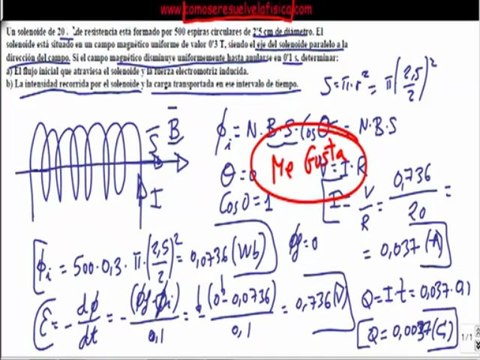 www.comoseresuelvelafisica.com
Un solenoide de 20 de resistencia está formado por 500 espiras circulares de 2'5 cm de diámetro. El
solenoide está situado en un campo magnético uniforme de valor 0'3 T, siendo el eje del solenoide paralelo a la
dirección del campo. Si el campo magnético disminuye uniformemente hasta anularse en 0'1 s, determinar:
a) El flujo inicial que atraviesa el solenoide y la fuerza electromotriz inducida.
b) La intensidad recorrida por el solenoide y la carga transportada en ese intervalo de tiempo.
S = π·r² = π(2,5/2)²
B
S
I
ϕi = N·B·S·Cosθ = N·B·S
θ = 0
Cosθ = 1
Me Gusta
V = I·R
I = V/R = 0,736/20 =
= 0,037 (A)
ϕi = 500·0,3·π(2,5/2)² = 0,0736 (Wb)
ϕf = 0
ε = -dϕ/dt = -(ϕf - ϕi)/0,1 = -(0 - 0,0736)/0,1 = 0,736 (V)
Q = I·t = 0,037·0,1
Q = 0,0037 (C)
1/1